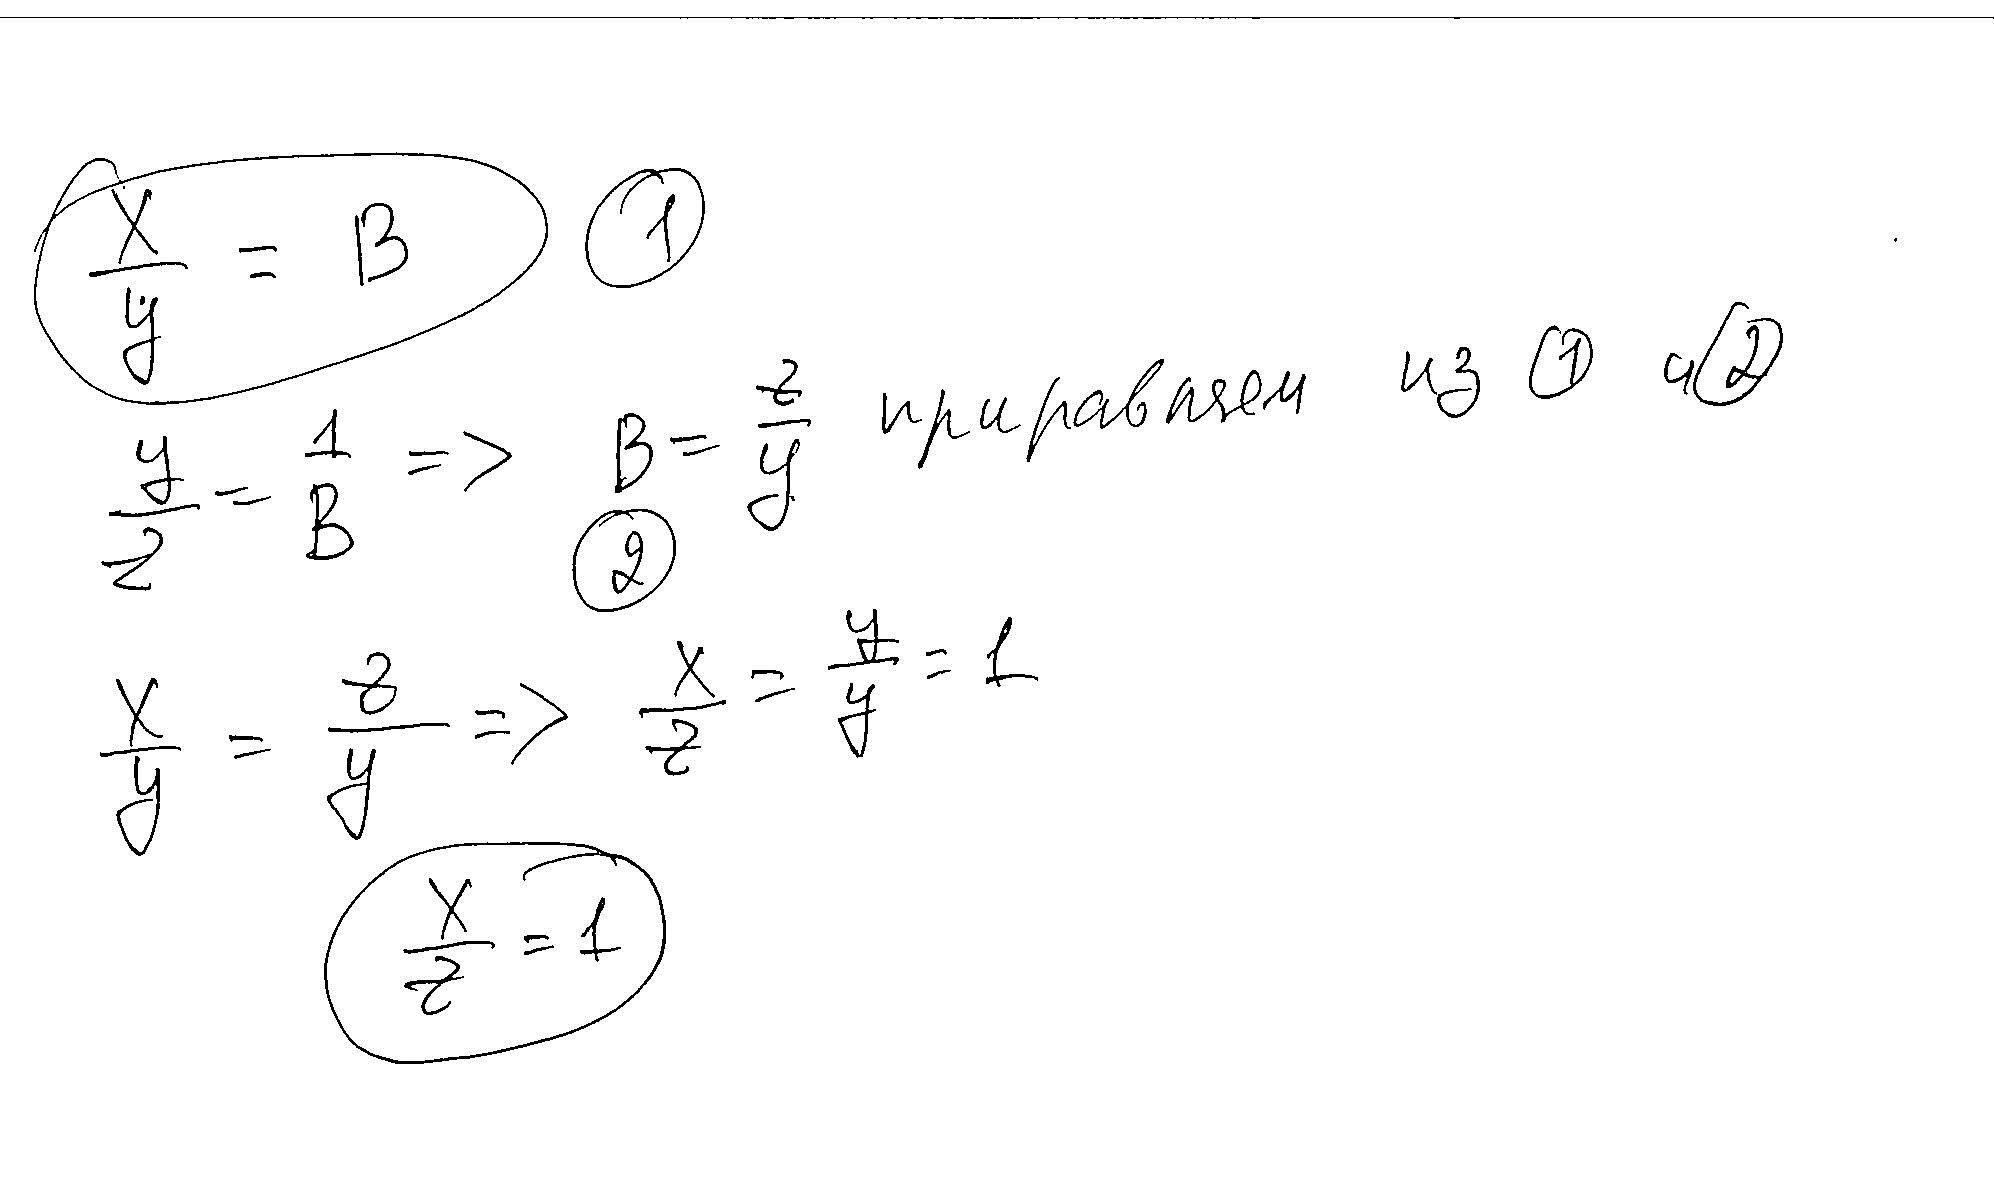 x/y = B ①
y/z = 1/B => B = z/y приравняем из ① и ②
②
x/y = z/y => x/z = y/y = 1
x/z = 1